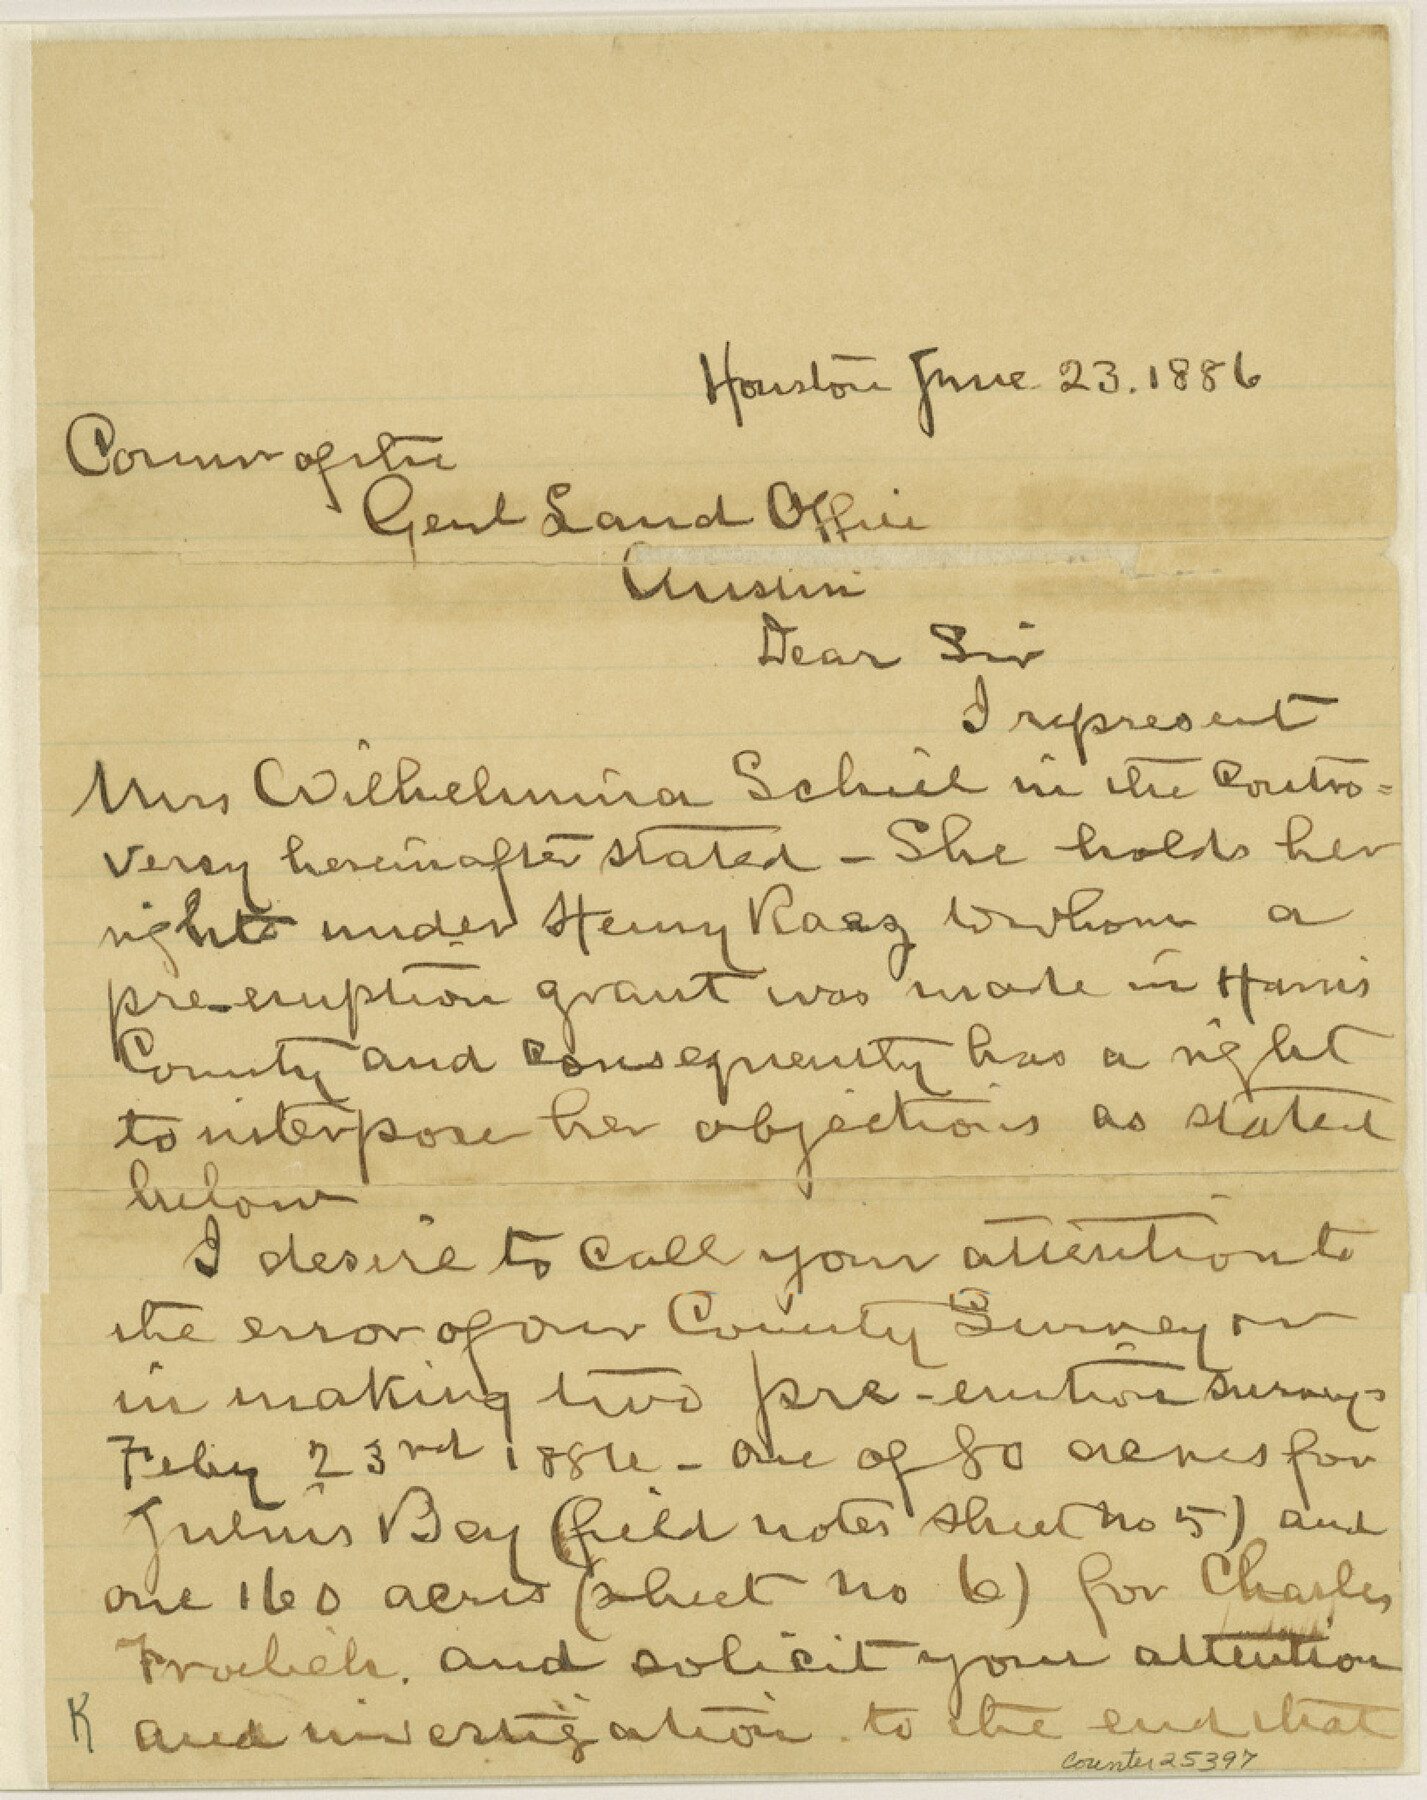 Houston June 23. 1886
Commr of the
Genl Land Office
Austin
Dear Sir
I represent
Mrs Wilhelmina Schiel in the Contro=
versy hereinafter stated - She holds her
rights under Henry Raaz to whom a
pre-emption grant was made in Harris
County and consequently has a right
to interpose her objections as stated
below
I desire to call your attention to
the error of our County Surveyor
in making two pre-emtion surveys
Feby 23rd 1886 - one of 80 acres for
Julius Bay (field notes sheet no 5) and
one 160 acres (sheet no 6) for Charles
Froelich. and solicit your attention
and investigation. to the end that
K
counter 25397